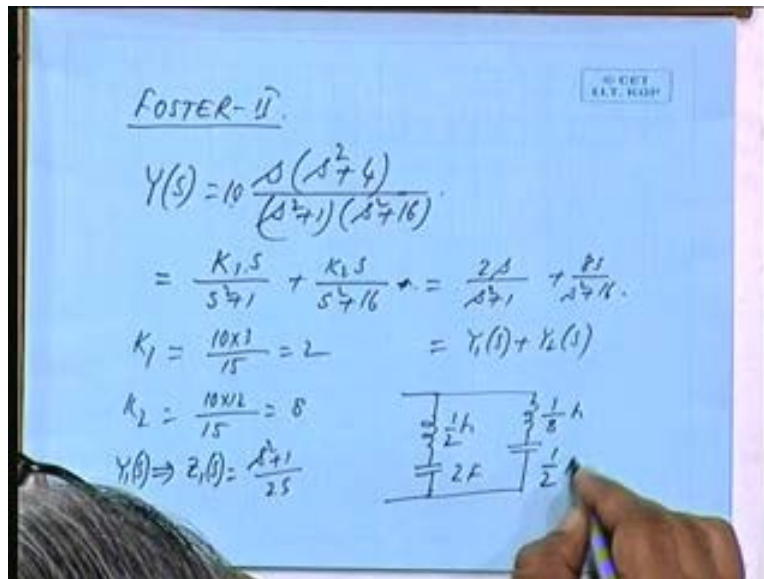 © CET
I.I.T. KGP
FOSTER-II.
Y(s) = 10 s(s²+4) / (s²+1)(s²+16).
= K₁.s / s²+1 + K₂ s / s²+16 = 2s / s²+1 + 8s / s²+16.
K₁ = 10×3 / 15 = 2 = Y₁(s) + Y₂(s)
K₂ = 10×12 / 15 = 8
Y₁(s) ⇒ Z₁(s) = s²+1 / 2s
1/2 h 1/8 h
2F 1/2